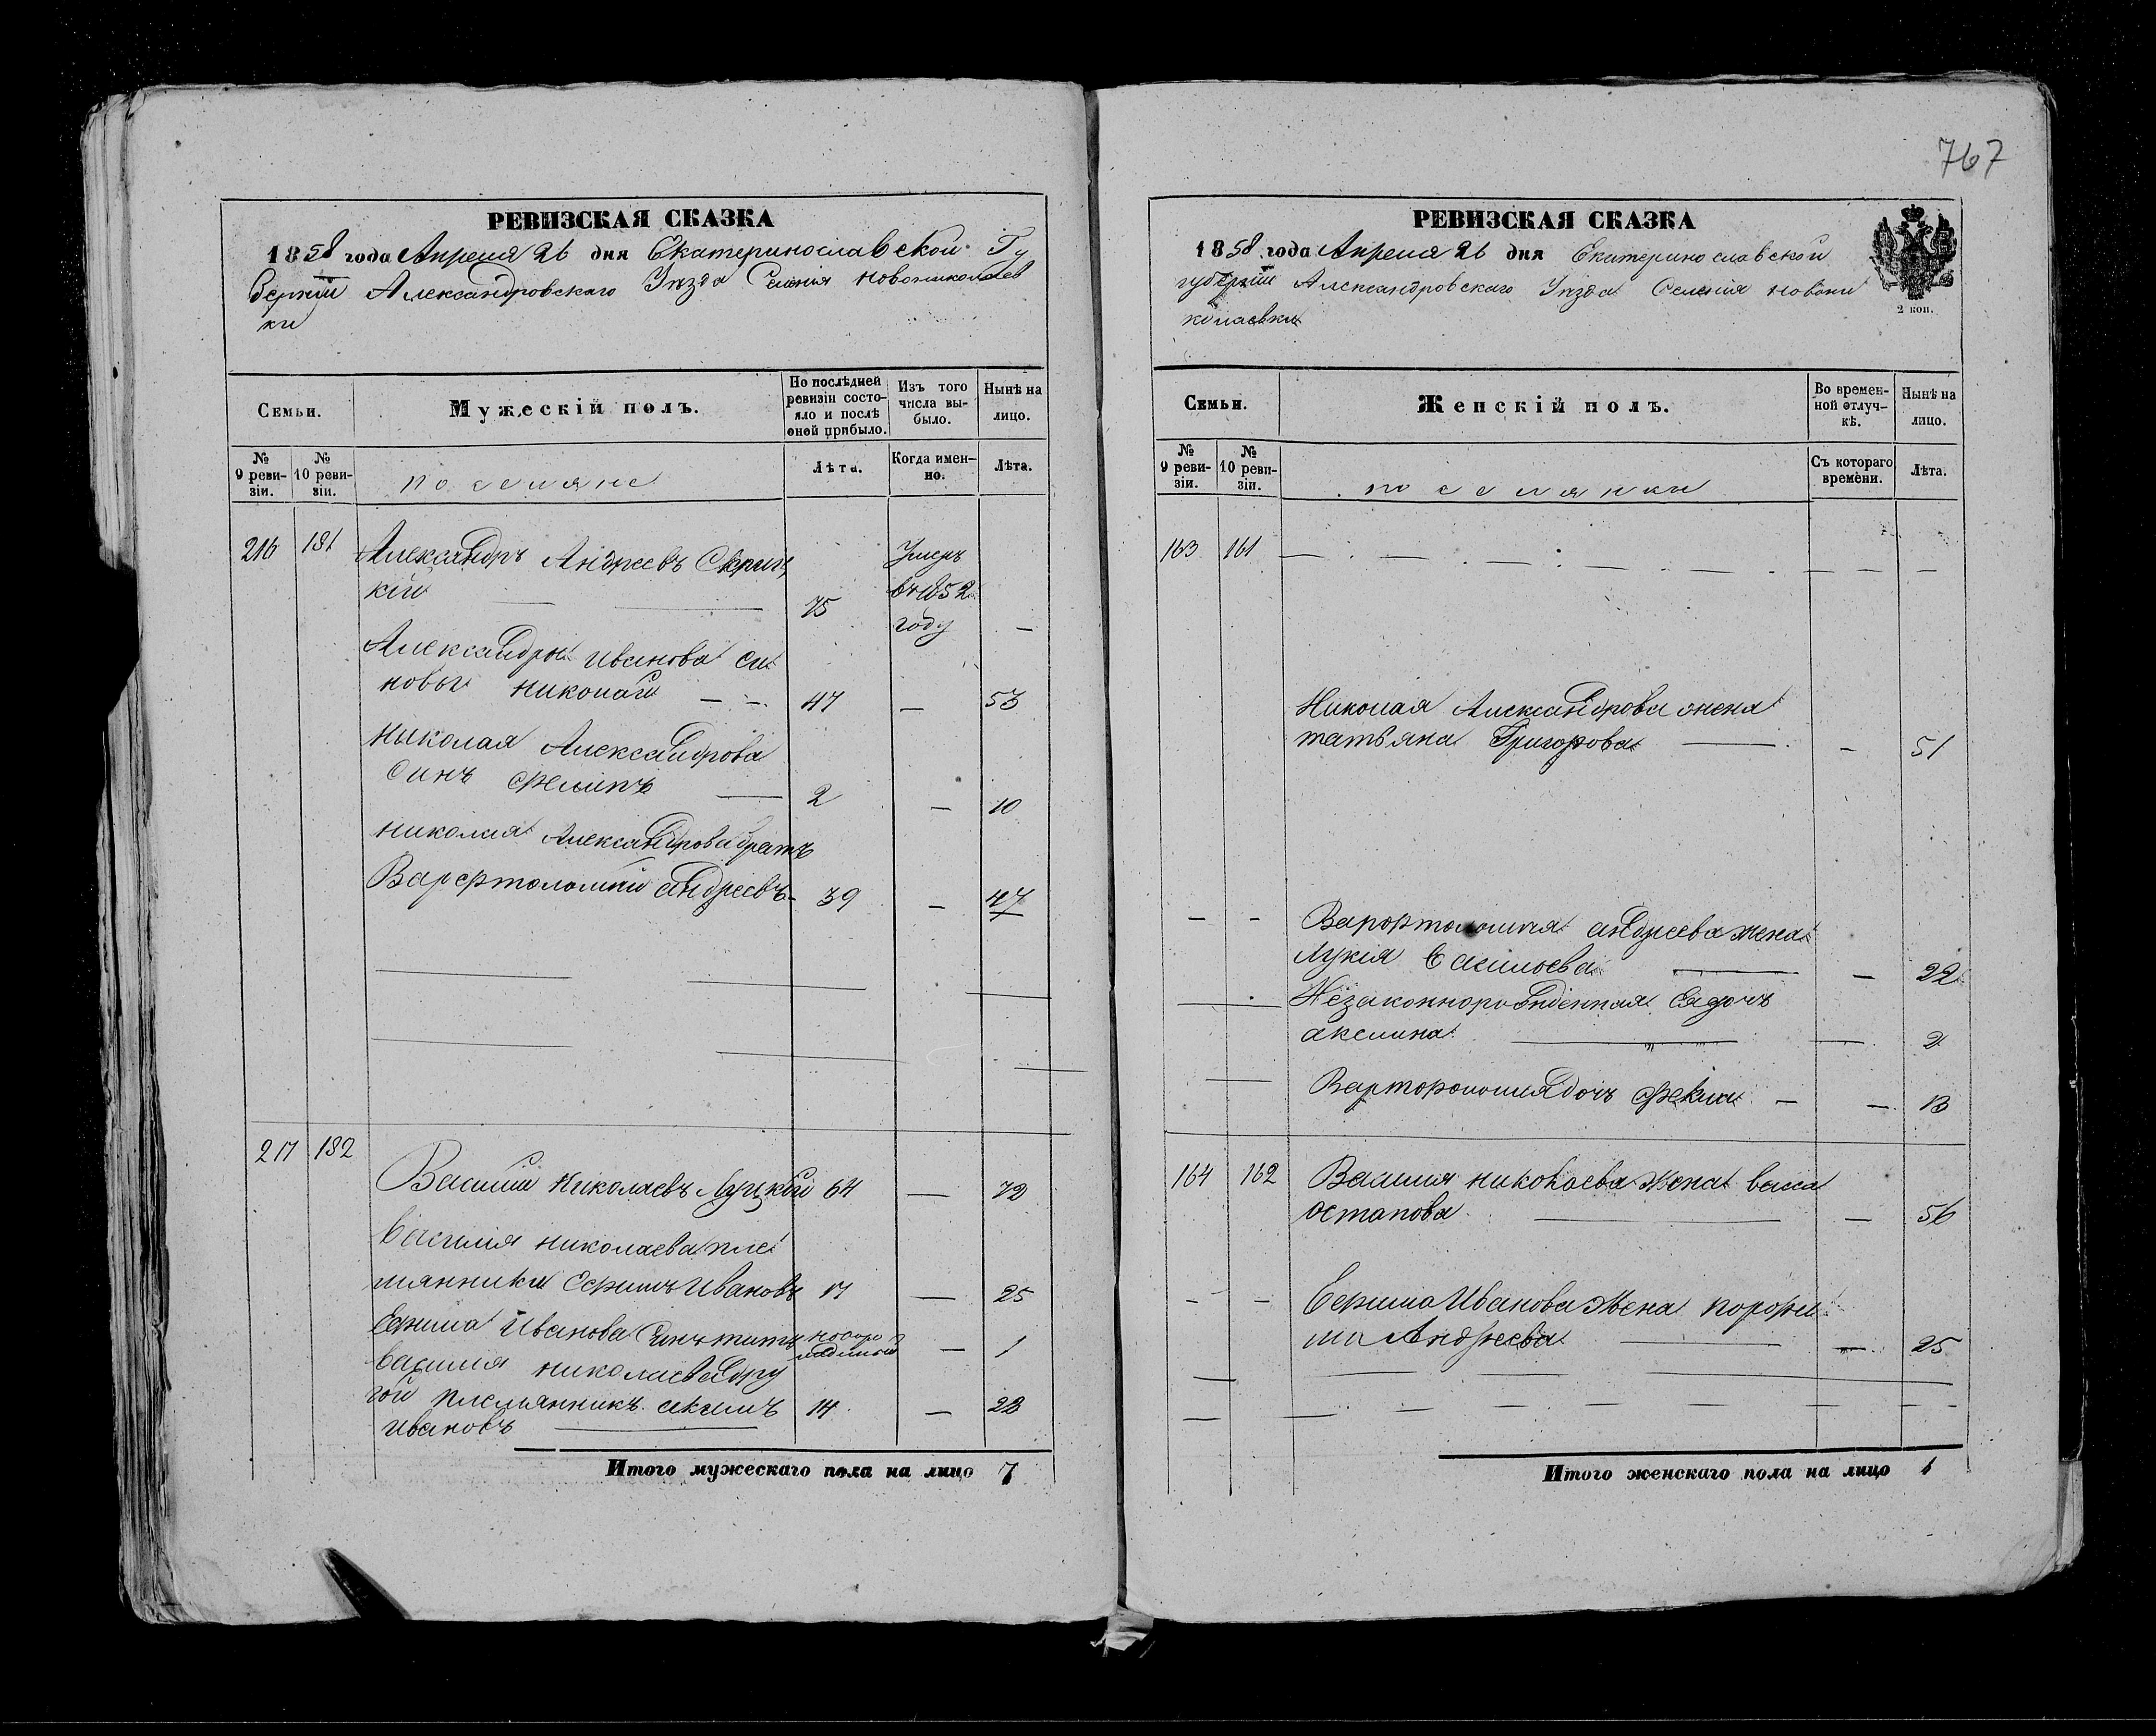 767
РЕВИЗСКАЯ СКАЗКА
1858 года Апреля 26 дня Екатеринославской Гу
берніи Александровскаго Уѣзда Селенія Новониколаев
ки
Семьи.
Мужескій полъ.
По послѣдней ревизіи состояло и послѣ оной прибыло.
Изъ того числа выбыло.
Нынѣ на лицо.
№ 9 ревизіи.
№ 10 ревизіи.
поселяне
Лѣта.
Когда именно.
Лѣта.
216 181 Александръ Андреевъ
кій 75 Умеръ въ 1852 году —
Александры Иванова си
новья Николай — — 47 — 55
Николая Александрова
синъ Филипъ — 2 — 10
Николая Александрова братъ
Варфтоломей Андреевъ 39 — 47
217 182
Василий Николаевъ Луцкій 64 — 72
Василия Николаева пле
мянники Ефимъ Ивановъ 17 — 25
Ефима Иванова Синъ титъ — 1
Василия Николаева дру
гой племянникъ акимъ 14 — 22
Ивановъ
Итого мужескаго пола на лицо 7
РЕВИЗСКАЯ СКАЗКА
1858 года Апреля 26 дня Екатеринославской
губерніи Александровскаго Уѣзда Селенія Новони
колаевки
2 коп.
Семьи.
Женскій полъ.
Во временной отлучкѣ.
Нынѣ на лицо.
№ 9 ревизіи.
№ 10 ревизіи.
поселянки
Съ котораго времени.
Лѣта.
163 161 — — — — — — — — —
Николая Александрова жена
татьяна Григорова — — 51
— — андреева жена
Лукія Василоева — — 22
— Незаконнорожденная Ея дочь
акелина — — 2
— дочь — — 13
164 162 Василия Николаева Жена васса
остапова — — 56
— — Ефима Иванова Жена порофи
ми Андреева — — 25
Итого женскаго пола на лицо